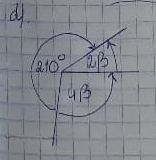 d).
210°
2β
4β